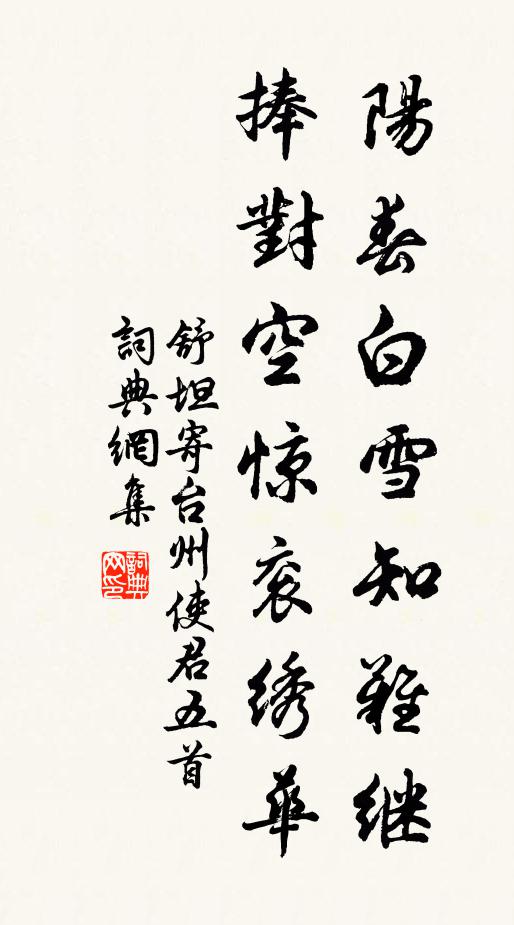 陽春白雪知難继
捧對空惊衮绣華
舒坦寄台州使君五首
詞典網集
詞典網印